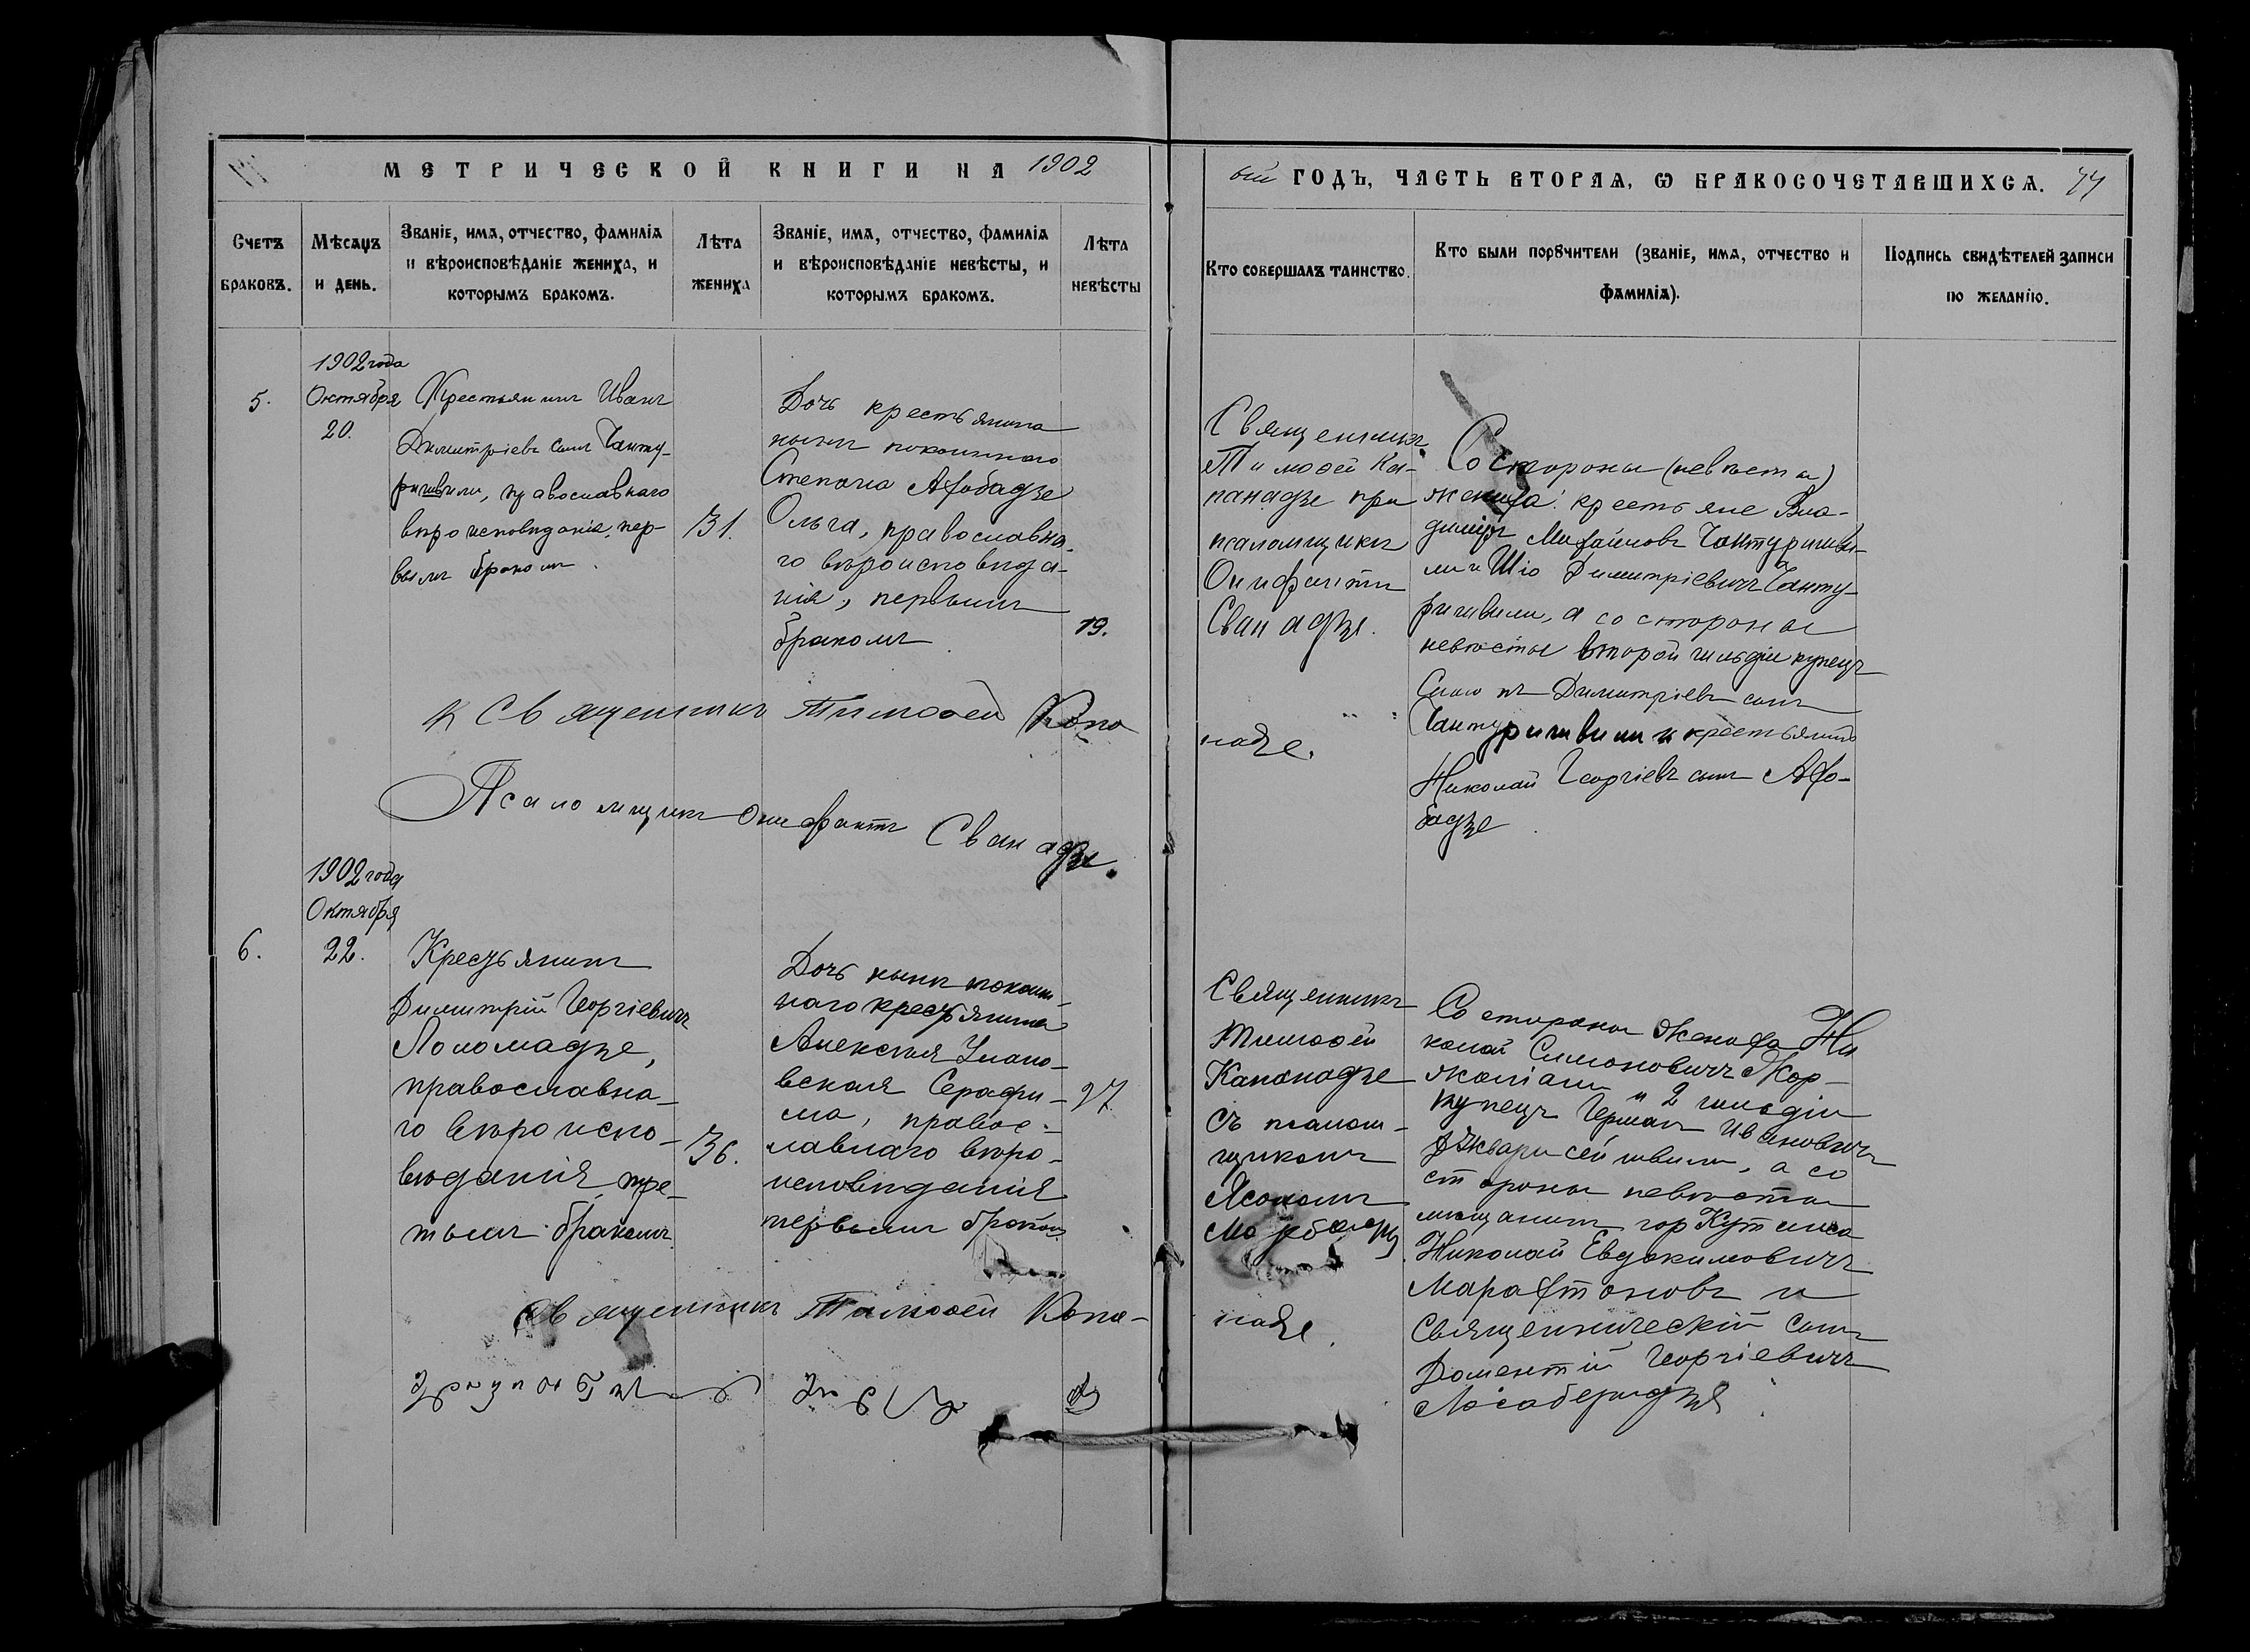 МЕТРИЧЕСКОЙ КНИГИ НА 1902
ый ГОДЪ, ЧАСТЬ ВТОРАЯ, Ѡ БРАКОСОЧЕТАВШИХСЯ. 44
Счетъ браковъ.
Мѣсяцъ и день.
Званіе, имя, отчество, фамилія
и вѣроисповѣданіе жениха, и
которымъ бракомъ.
Лѣта жениха
Званіе, имя, отчество, фамилія
и вѣроисповѣданіе невѣсты, и
которымъ бракомъ.
Лѣта невѣсты
Кто совершалъ таинство.
Кто были порꙋчители (званіе, имя, отчество и
фамилія).
Подпись свидѣтелей записи
по желанію.
5.
1902 года
Октября
20.
Крестьянинъ Иванъ
Димитріевъ сынъ Чанту-
ришвили, православнаго
вѣроисповѣданія, пер-
вымъ бракомъ.
31.
Дочь крестьянина
нынѣ покойнаго
Степана Ахобадзе
Ольга, православна-
го вѣроисповѣда-
нія, первымъ
бракомъ
19.
Священникъ
Тимоѳей Ка-
панадзе при
псаломщикѣ
Онифантѣ
Сванадзе.
Со стороны (невѣсты)
жениха: крестьяне Вла-
диміръ Михайловъ Чантуришви-
ли и Шіо Димитріевичъ Чанту-
ришвили, а со стороны
невѣсты второй гильдіи купецъ
Димитріевъ сынъ
Чантуришвили и крестьянинъ
Николай Георгіевъ сынъ Ахо-
бадзе
Священникъ Тимоѳей Капа
надзе.
Псаломщикъ Онифантъ Сванадзе.
6.
1902 года
Октября
22.
Крестьянинъ
Димитрій Георгіевичъ
Лоломадзе,
православна-
го вѣроиспо-
вѣданія тре-
тьимъ бракомъ.
36.
Дочь нынѣ покой-
наго крестьянина
Алексѣя
Серафи-
ма, правос-
лавнаго вѣро-
исповѣданія
первымъ бракомъ
27
Священникъ
Тимоѳей
Капанадзе
съ псалом-
щикомъ
Ясономъ
Со стороны жениха Ни
колай Симоновичъ Жор-
жоліани и 2 гильдіи
купецъ Германъ Ивановичъ
а со
стороны невѣсты
мѣщанинъ гор Кутаиса
Николай Евдокимовичъ
и
Священническій сынъ
Доментій Георгіевичъ
Лосаберидзе
Священникъ Тимоѳей Капа-
надзе.